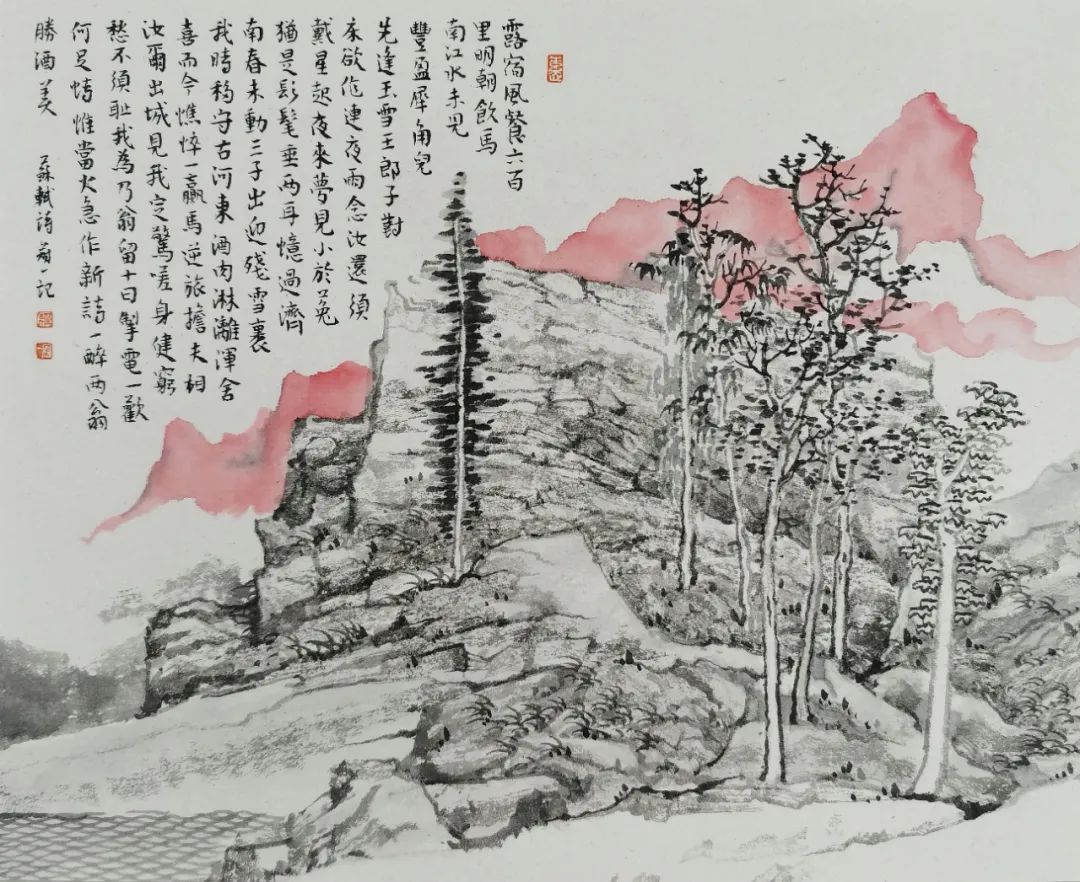 露宿風餐六百
里明朝飲馬
南江水未見
豐盈犀角兒
先逢玉雪王郎子對
床欲作連夜雨念汝還須
戴星起夜來夢見小於菟
猶是髧髦垂兩耳憶過濟
南春未動三子出迎殘雪裏
我時移守古河東酒肉淋灕渾舍
喜而今憔悴一羸馬逆旅擔夫相
汝爾出城見我定驚嗟身健窮
愁不須耻我為乃翁留十日掣電一歡
何足恃惟當火急作新詩一醉兩翁
勝酒美
蘇軾詩 一記